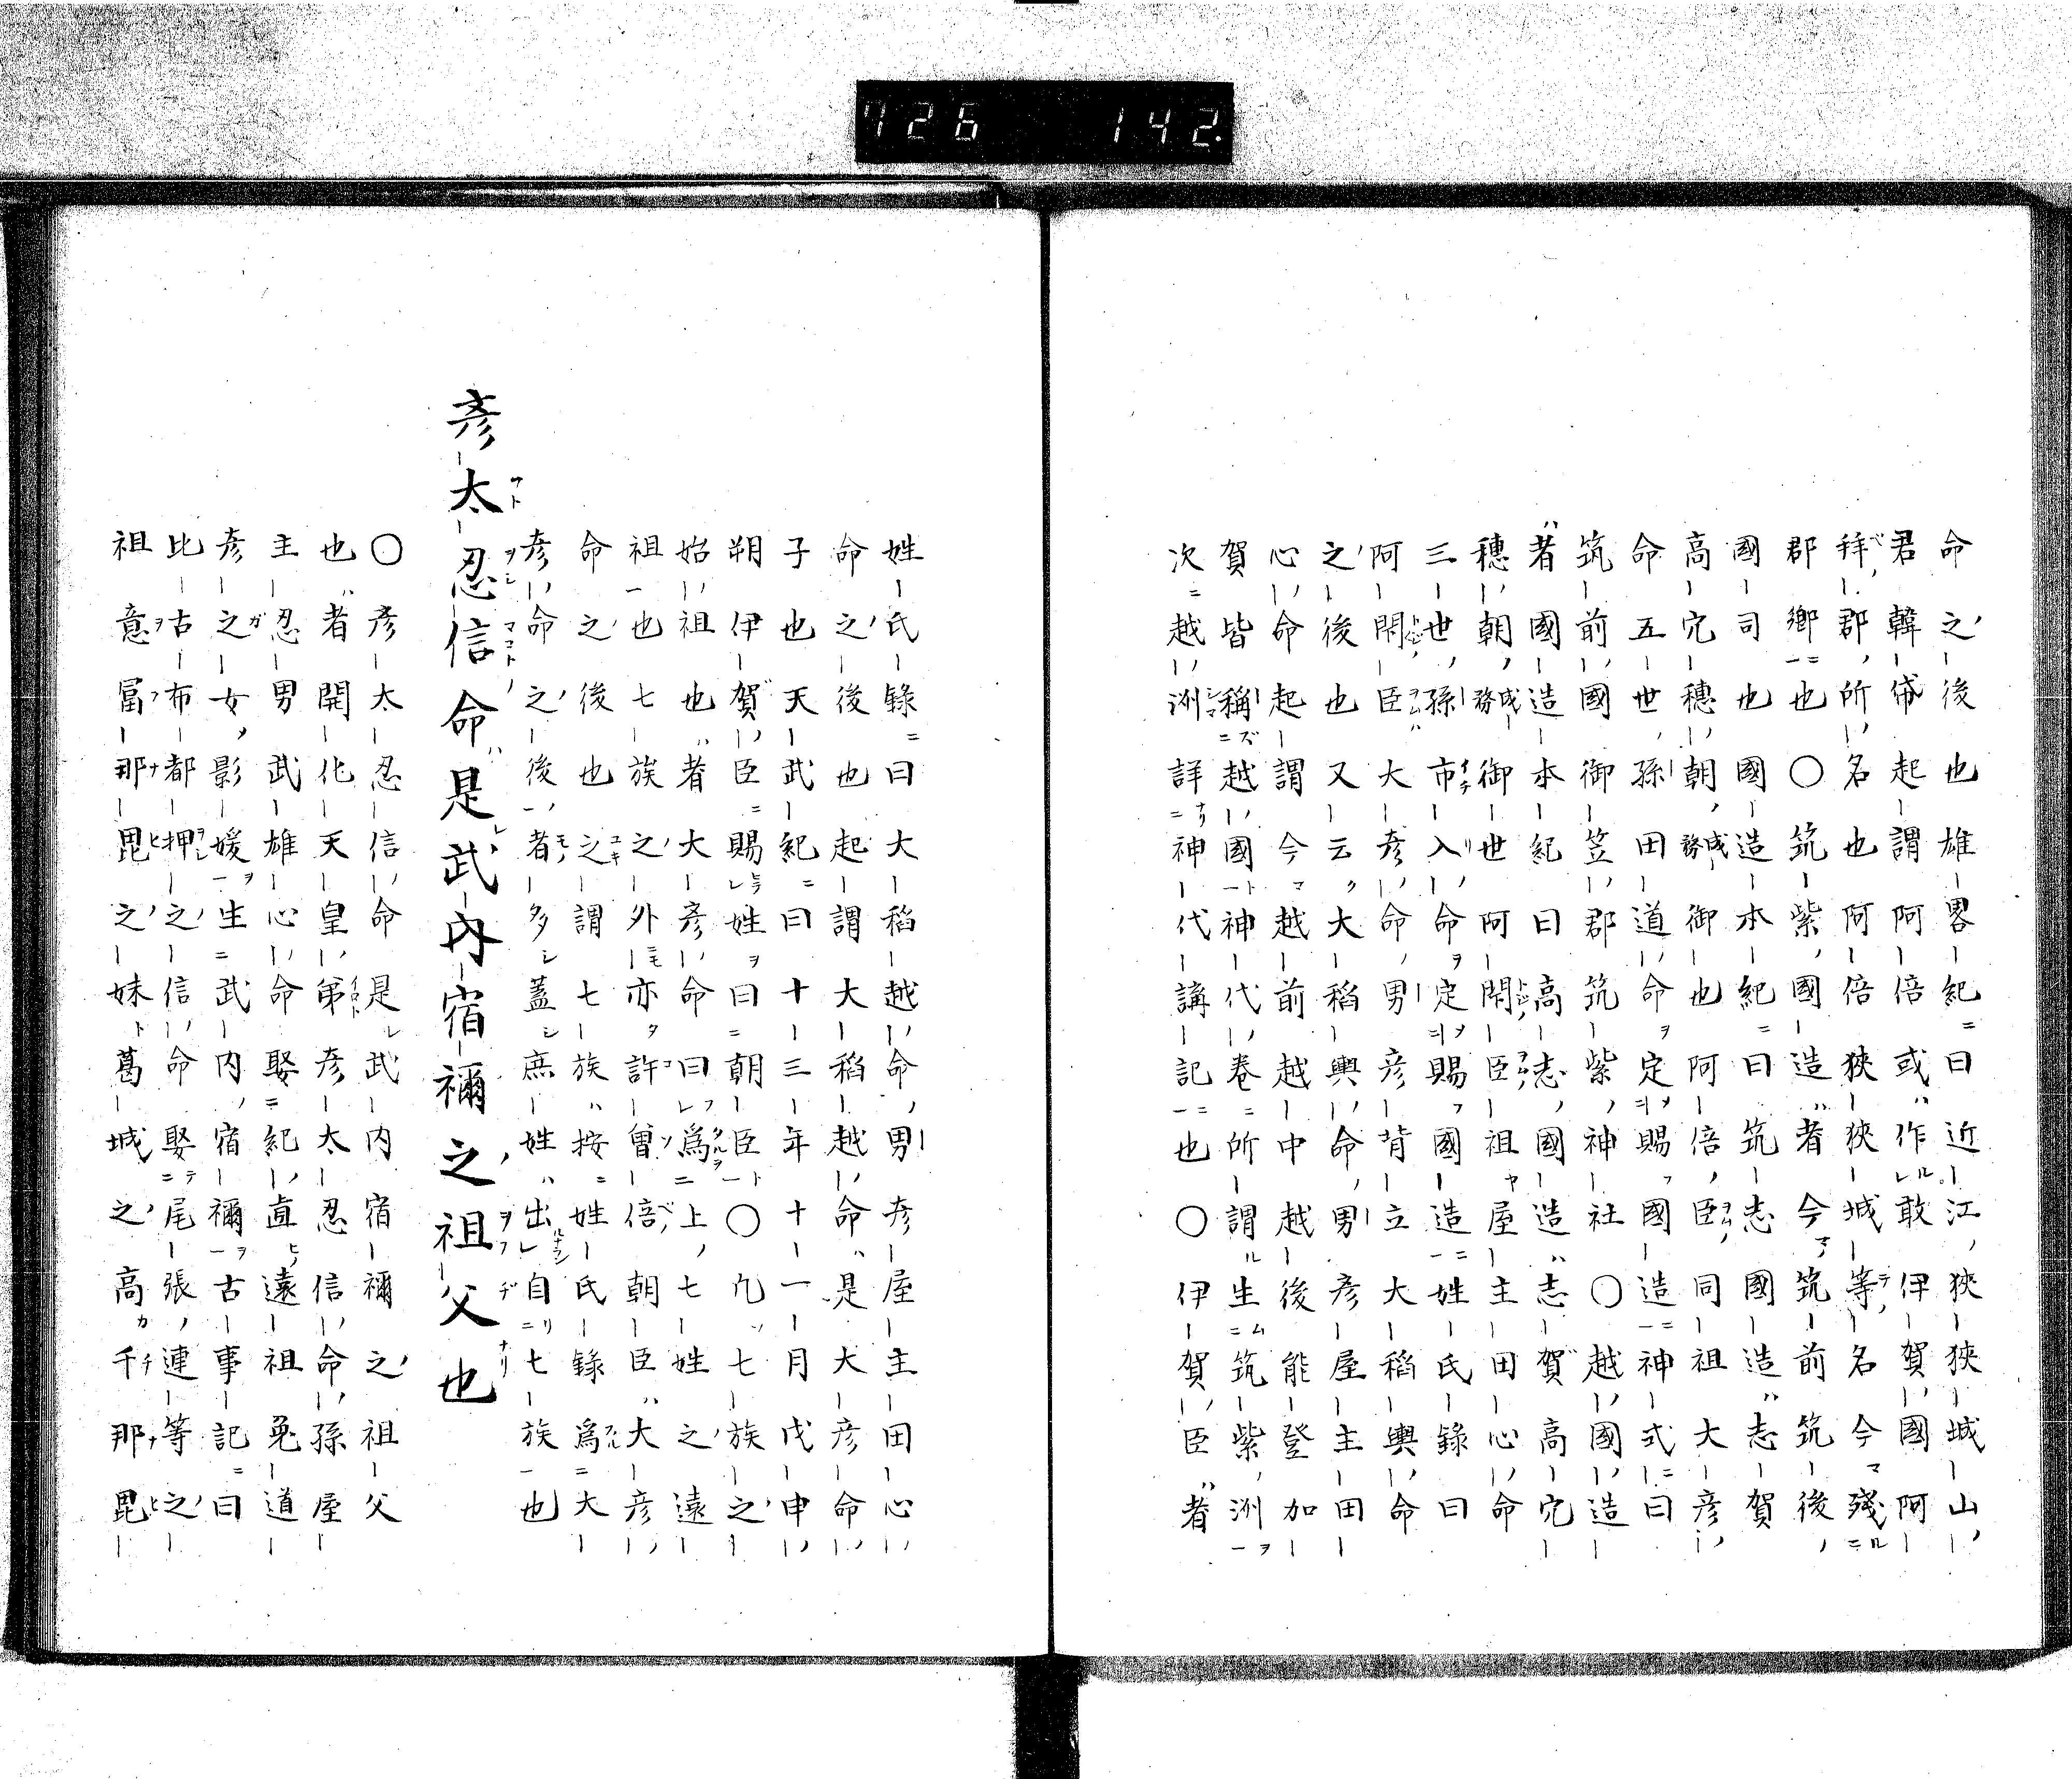 726 142
命之後也雄畧紀曰近江狹狹城山
君韓帒起謂阿倍或作敢伊賀國阿
拜郡所名也阿倍狹狹城等名今殘
郡鄉也〇筑紫國造者今筑前筑後
國司也國造本紀曰筑志國造志賀
高穴穗朝御也阿倍臣同祖大彦
命五世孫田道命定賜國造神式曰
筑前國御笠郡筑紫神社〇越國造
者國造本紀曰高志國造志賀高穴
穗朝御世阿閇臣祖屋主田心命
三世孫市入命定賜國造姓氏錄曰
阿閇臣大彦命男彦背立大稻輿命
之後也又云大稻輿命男彦屋主田
心命起謂今越前越中越後能登加
賀皆稱越國神代卷所謂生筑紫洲
次越洲詳神代講記也〇伊賀臣者
姓氏錄曰大稻越命男彦屋主田心
命之後也起謂大稻越命是大彦命
子也天武紀曰十三年十一月戊申
朔伊賀臣賜姓曰朝臣〇凢七族之
始祖也者大彦命曰爲上七姓之遠
祖也七族之外亦許曾倍朝臣大彦
命之後也之謂七族按姓氏錄爲大
彦命之後者多蓋庶姓出自七族也
彦太忍信命是武内宿禰之祖父也
〇彦太忍信命是武内宿禰之祖父
也者開化天皇弟彦太忍信命孫屋
主忍男武雄心命娶紀直遠祖菟道
彦之女影媛生武内宿禰古事記曰
比古布都押之信命娶尾張連等之
祖意冨那毘之妹葛城之高千那毘